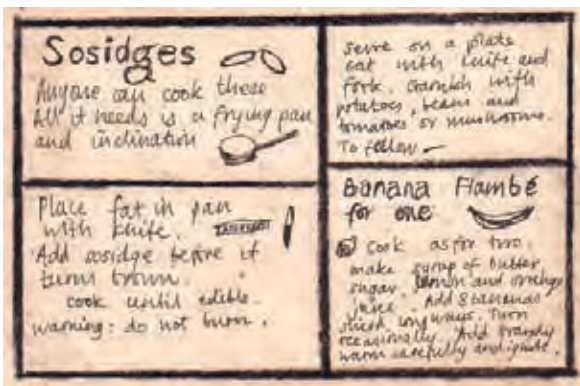 Sosidges
Anyone can cook these
All it needs is a frying pan
and inclination
Place fat in pan
with knife.
Add sosidge before it
turns brown.
cook until edible.
warning: do not burn.
serve on a plate
eat with knife and
fork. Garnish with
potatoes, beans and
tomatoes or mushrooms.
To follow
Banana Flambé
for one
cook as for two.
make syrup of butter
sugar lemon and orange
juice. Add 8 bananas
sliced longways. Turn
occasionally. Add brandy
warm carefully and ignite.